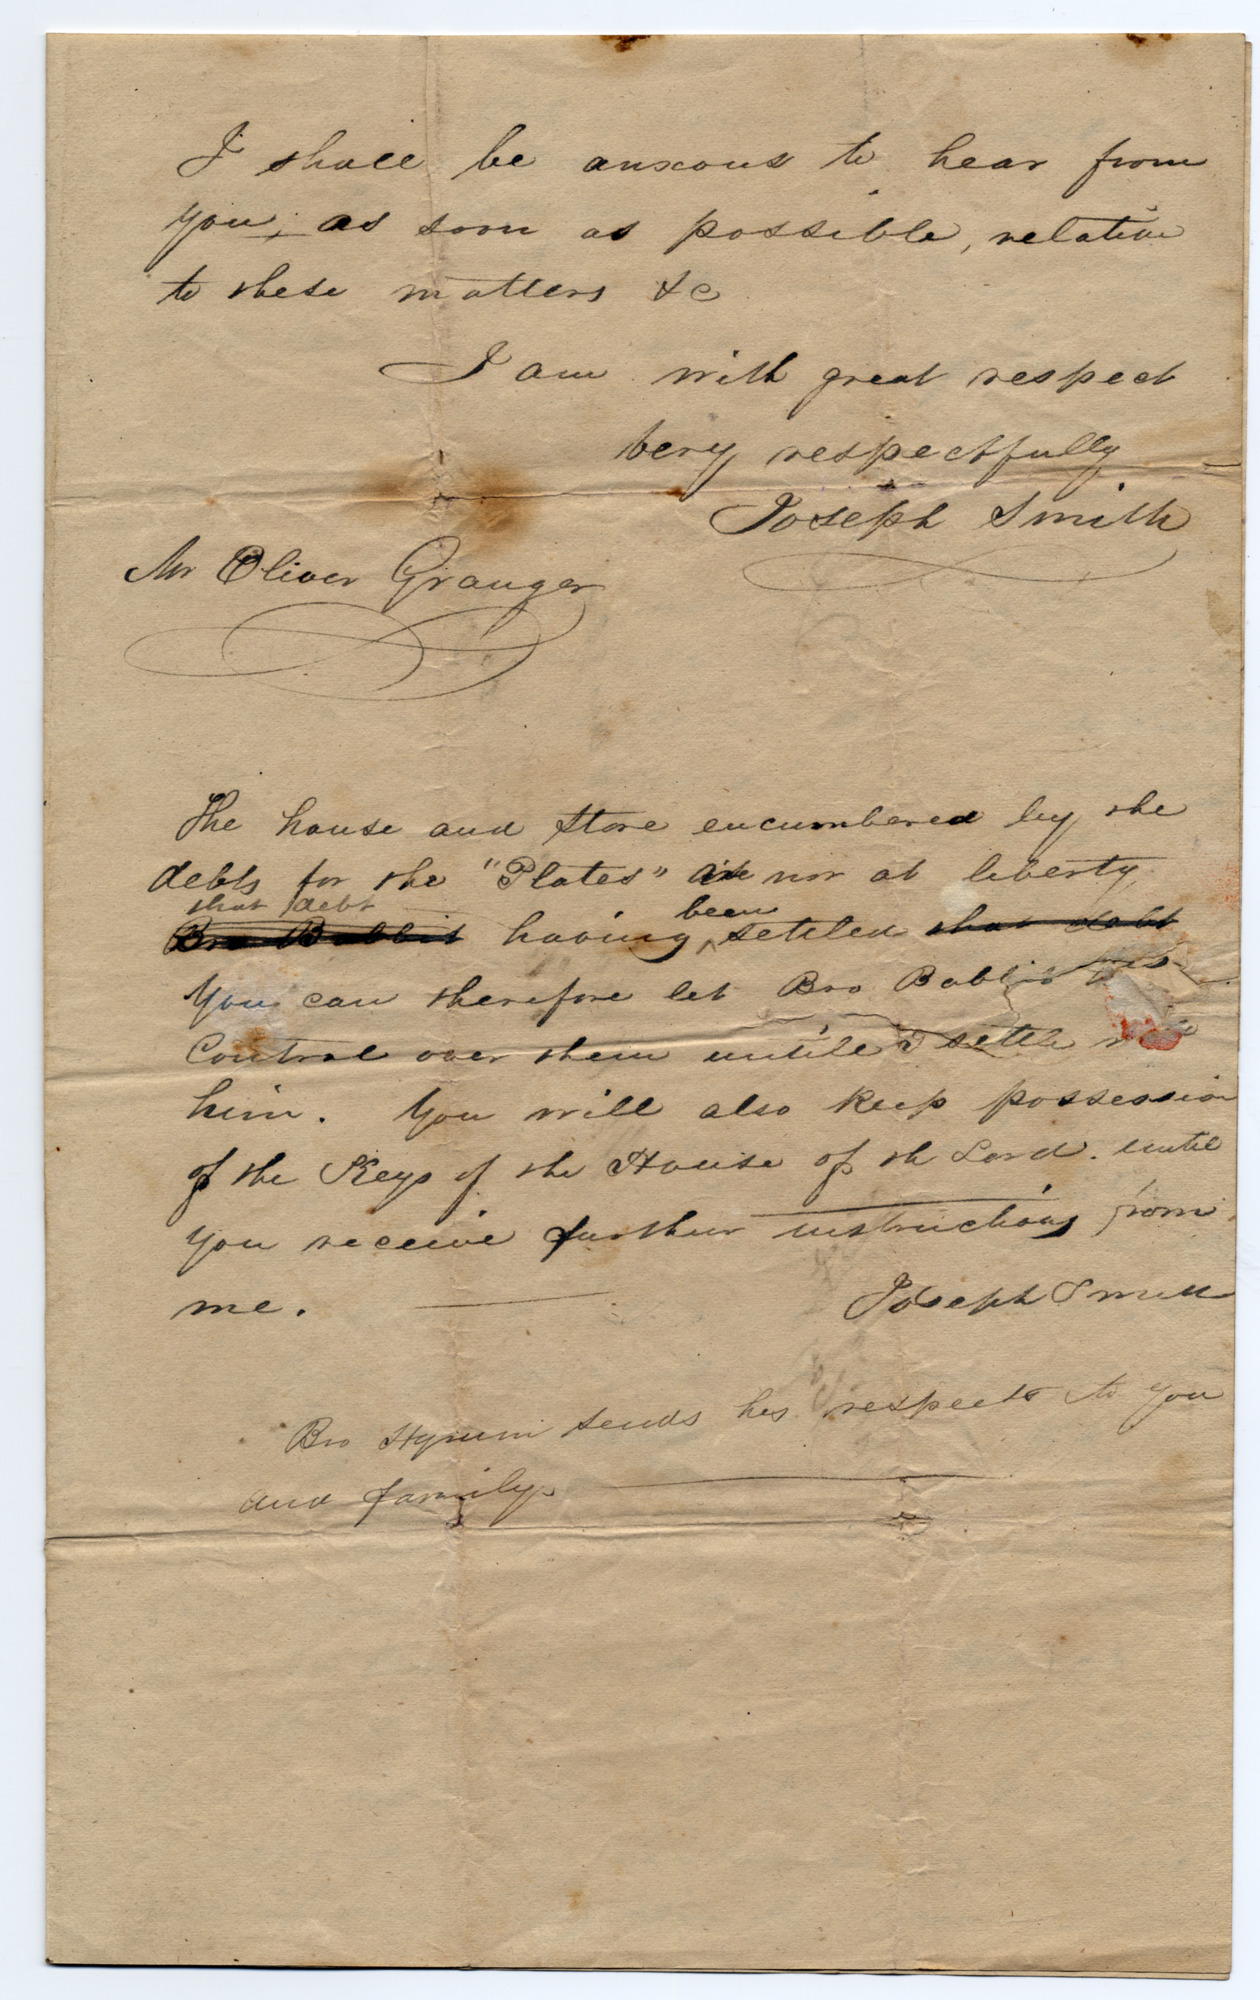 I shall be anxous to hear from
you, as soon as possible, relative
to these matters &c
I am with great respect
very respectfully
Joseph Smith
Mr Oliver Granger
The house and Store encumbered by the
debts for the "Plates" are now at liberty
that debt
Bro Babbit having been settled that debt
You can therefore let Bro Babbit
Control over them untile I settle
him. You will also keep possession
of the Keys of the House of th Lord. until
you receive further instructions from
me.
Joseph Smith
Bro Hyrum sends his respects to you
and family.